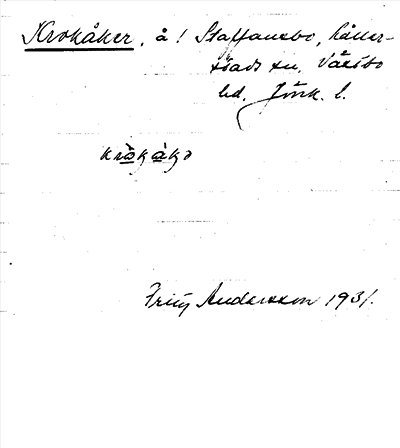 Krokåker, å! Staffansbo, Håller-
stads sn. Västbo
hd. Jönk. l.
kròkåkə
Fritz Andersson 1931.